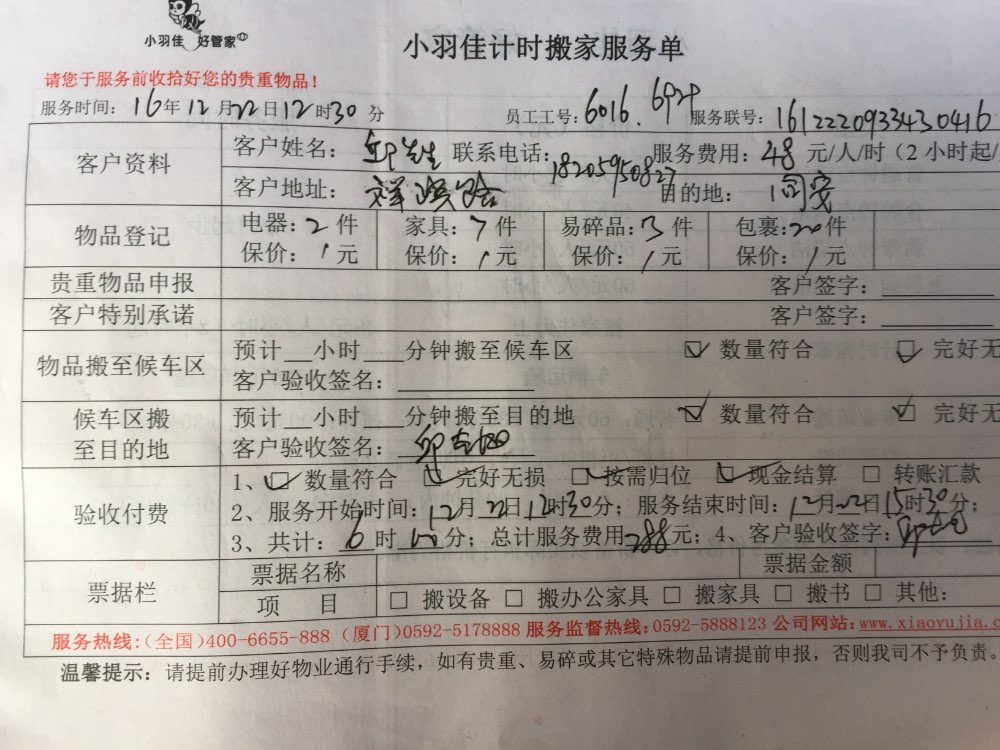 小羽佳 好管家
小羽佳计时搬家服务单
请您于服务前收拾好您的贵重物品！
服务时间：16年12月22日12时30分 员工工号：6016. 6924 服务联号：1612220933430416
客户资料 客户姓名：邱先生 联系电话：18205950827 服务费用：48元/人/时（2小时起/
客户地址： 目的地：同安
物品登记 电器：2件 家具：7件 易碎品：3件 包裹：20件
保价：1元 保价：1元 保价：1元 保价：1元
贵重物品申报 客户签字：
客户特别承诺 客户签字：
物品搬至候车区 预计__小时___分钟搬至候车区 ☑ 数量符合 ☑ 完好无
客户验收签名：
候车区搬至目的地 预计__小时___分钟搬至目的地 ☑ 数量符合 ☑ 完好无
客户验收签名：
验收付费 1、☑ 数量符合 ☑ 完好无损 ☑ 按需归位 ☑ 现金结算 □ 转账汇款
2、服务开始时间：12月22日12时30分；服务结束时间：12月22日15时30分；
3、共计：6时00分；总计服务费用288元；4、客户验收签字：
票据栏 票据名称 票据金额
项 目 □ 搬设备 □ 搬办公家具 □ 搬家具 □ 搬书 □ 其他：
服务热线：（全国）400-6655-888（厦门）0592-5178888 服务监督热线：0592-5888123 公司网站：www.xiaoyujia.c
温馨提示：请提前办理好物业通行手续，如有贵重、易碎或其它特殊物品请提前申报，否则我司不予负责。